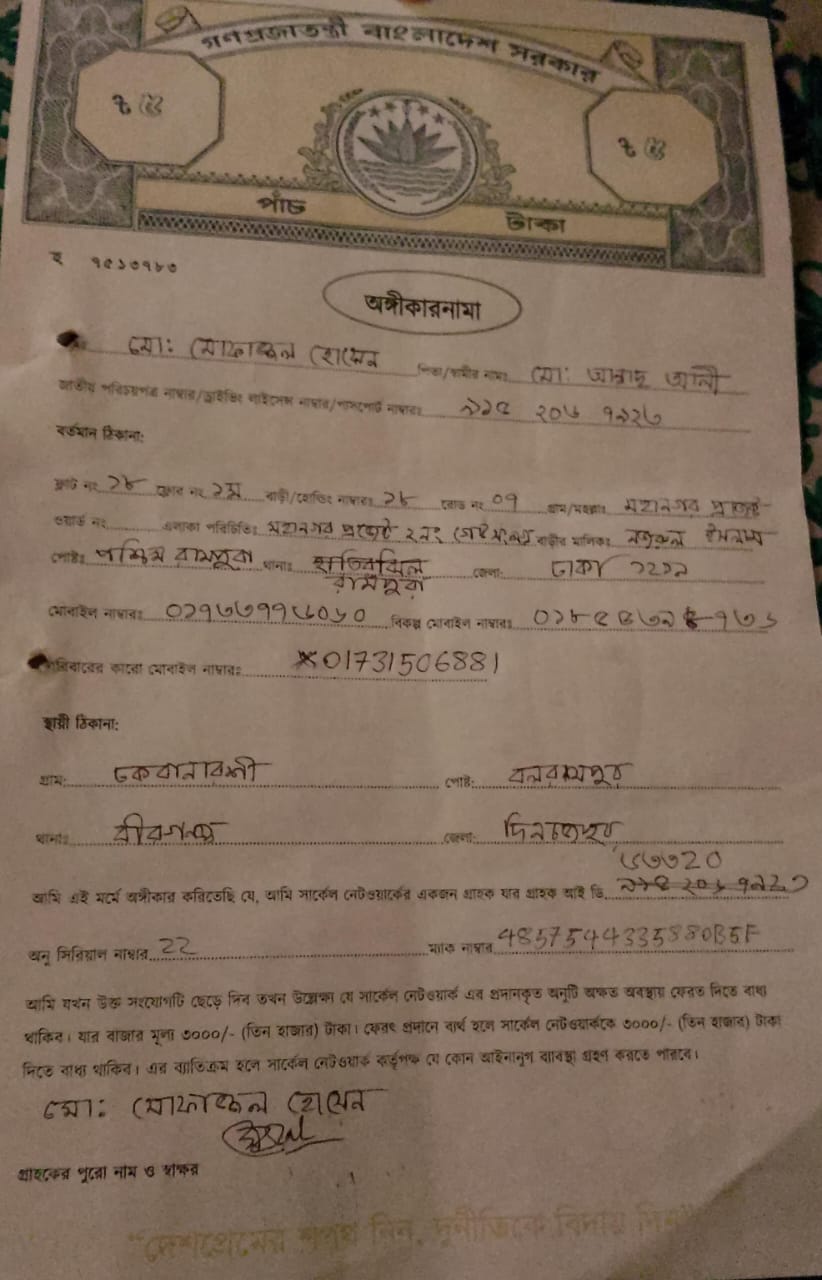 গণপ্রজাতন্ত্রী বাংলাদেশ সরকার
৳ ৫ ৳ ৫
পাঁচ টাকা
হ ৭৫১৩৭৮৩
অঙ্গীকারনামা
মো: মোফাজ্জল হোসেন পিতা/স্বামীর নামঃ মো: আলী
জাতীয় পরিচয়পত্র নাম্বার/ড্রাইভিং লাইসেন্স নাম্বার/পাসপোর্ট নাম্বারঃ
বর্তমান ঠিকানা:
ফ্লাট নং ১৮ ফ্লোর নং ১ম বাড়ী/হোল্ডিং নাম্বারঃ ১৮ রোড নং ০৭ গ্রাম/মহল্লাঃ মহানগর প্রজেক্ট
ওয়ার্ড নং এলাকা পরিচিতিঃ মহানগর প্রজেক্ট ২নং বাড়ীর মালিকঃ নজরুল ইসলাম
পোষ্টঃ পশ্চিম রামপুরা থানাঃ হাতিরঝিল জেলাঃ ঢাকা ১২১৯
রামপুরা
মোবাইল নাম্বারঃ বিকল্প মোবাইল নাম্বারঃ
পরিবারের কারো মোবাইল নাম্বারঃ 01731506881
স্থায়ী ঠিকানা:
গ্রাম: পোষ্ট: বলরামপুর
থানাঃ বীরগঞ্জ জেলা: দিনাজপুর
৬৩৩20
আমি এই মর্মে অঙ্গীকার করিতেছি যে, আমি সার্কেল নেটওয়ার্কের একজন গ্রাহক যার গ্রাহক আই ডি
অনু সিরিয়াল নাম্বার 22 ম্যাক নাম্বার 48575444335880B5F
আমি যখন উক্ত সংযোগটি ছেড়ে দিব তখন উল্লেক্ষা যে সার্কেল নেটওয়ার্ক এর প্রদানকৃত অনুটি অক্ষত অবস্থায় ফেরত দিতে বাধ্য
থাকিব। যার বাজার মূল্য ৩০০০/- (তিন হাজার) টাকা। ফেরৎ প্রদানে ব্যর্থ হলে সার্কেল নেটওয়ার্ককে ৩০০০/- (তিন হাজার) টাকা
দিতে বাধ্য থাকিব। এর ব্যাতিক্রম হলে সার্কেল নেটওয়ার্ক কর্তৃপক্ষ যে কোন আইনানুগ ব্যাবস্থা গ্রহণ করতে পারবে।
মো: মোফাজ্জল হোসেন
গ্রাহকের পুরো নাম ও স্বাক্ষর
"দেশপ্রেমের শপথ নিন, দুর্নীতিকে বিদায় দিন"